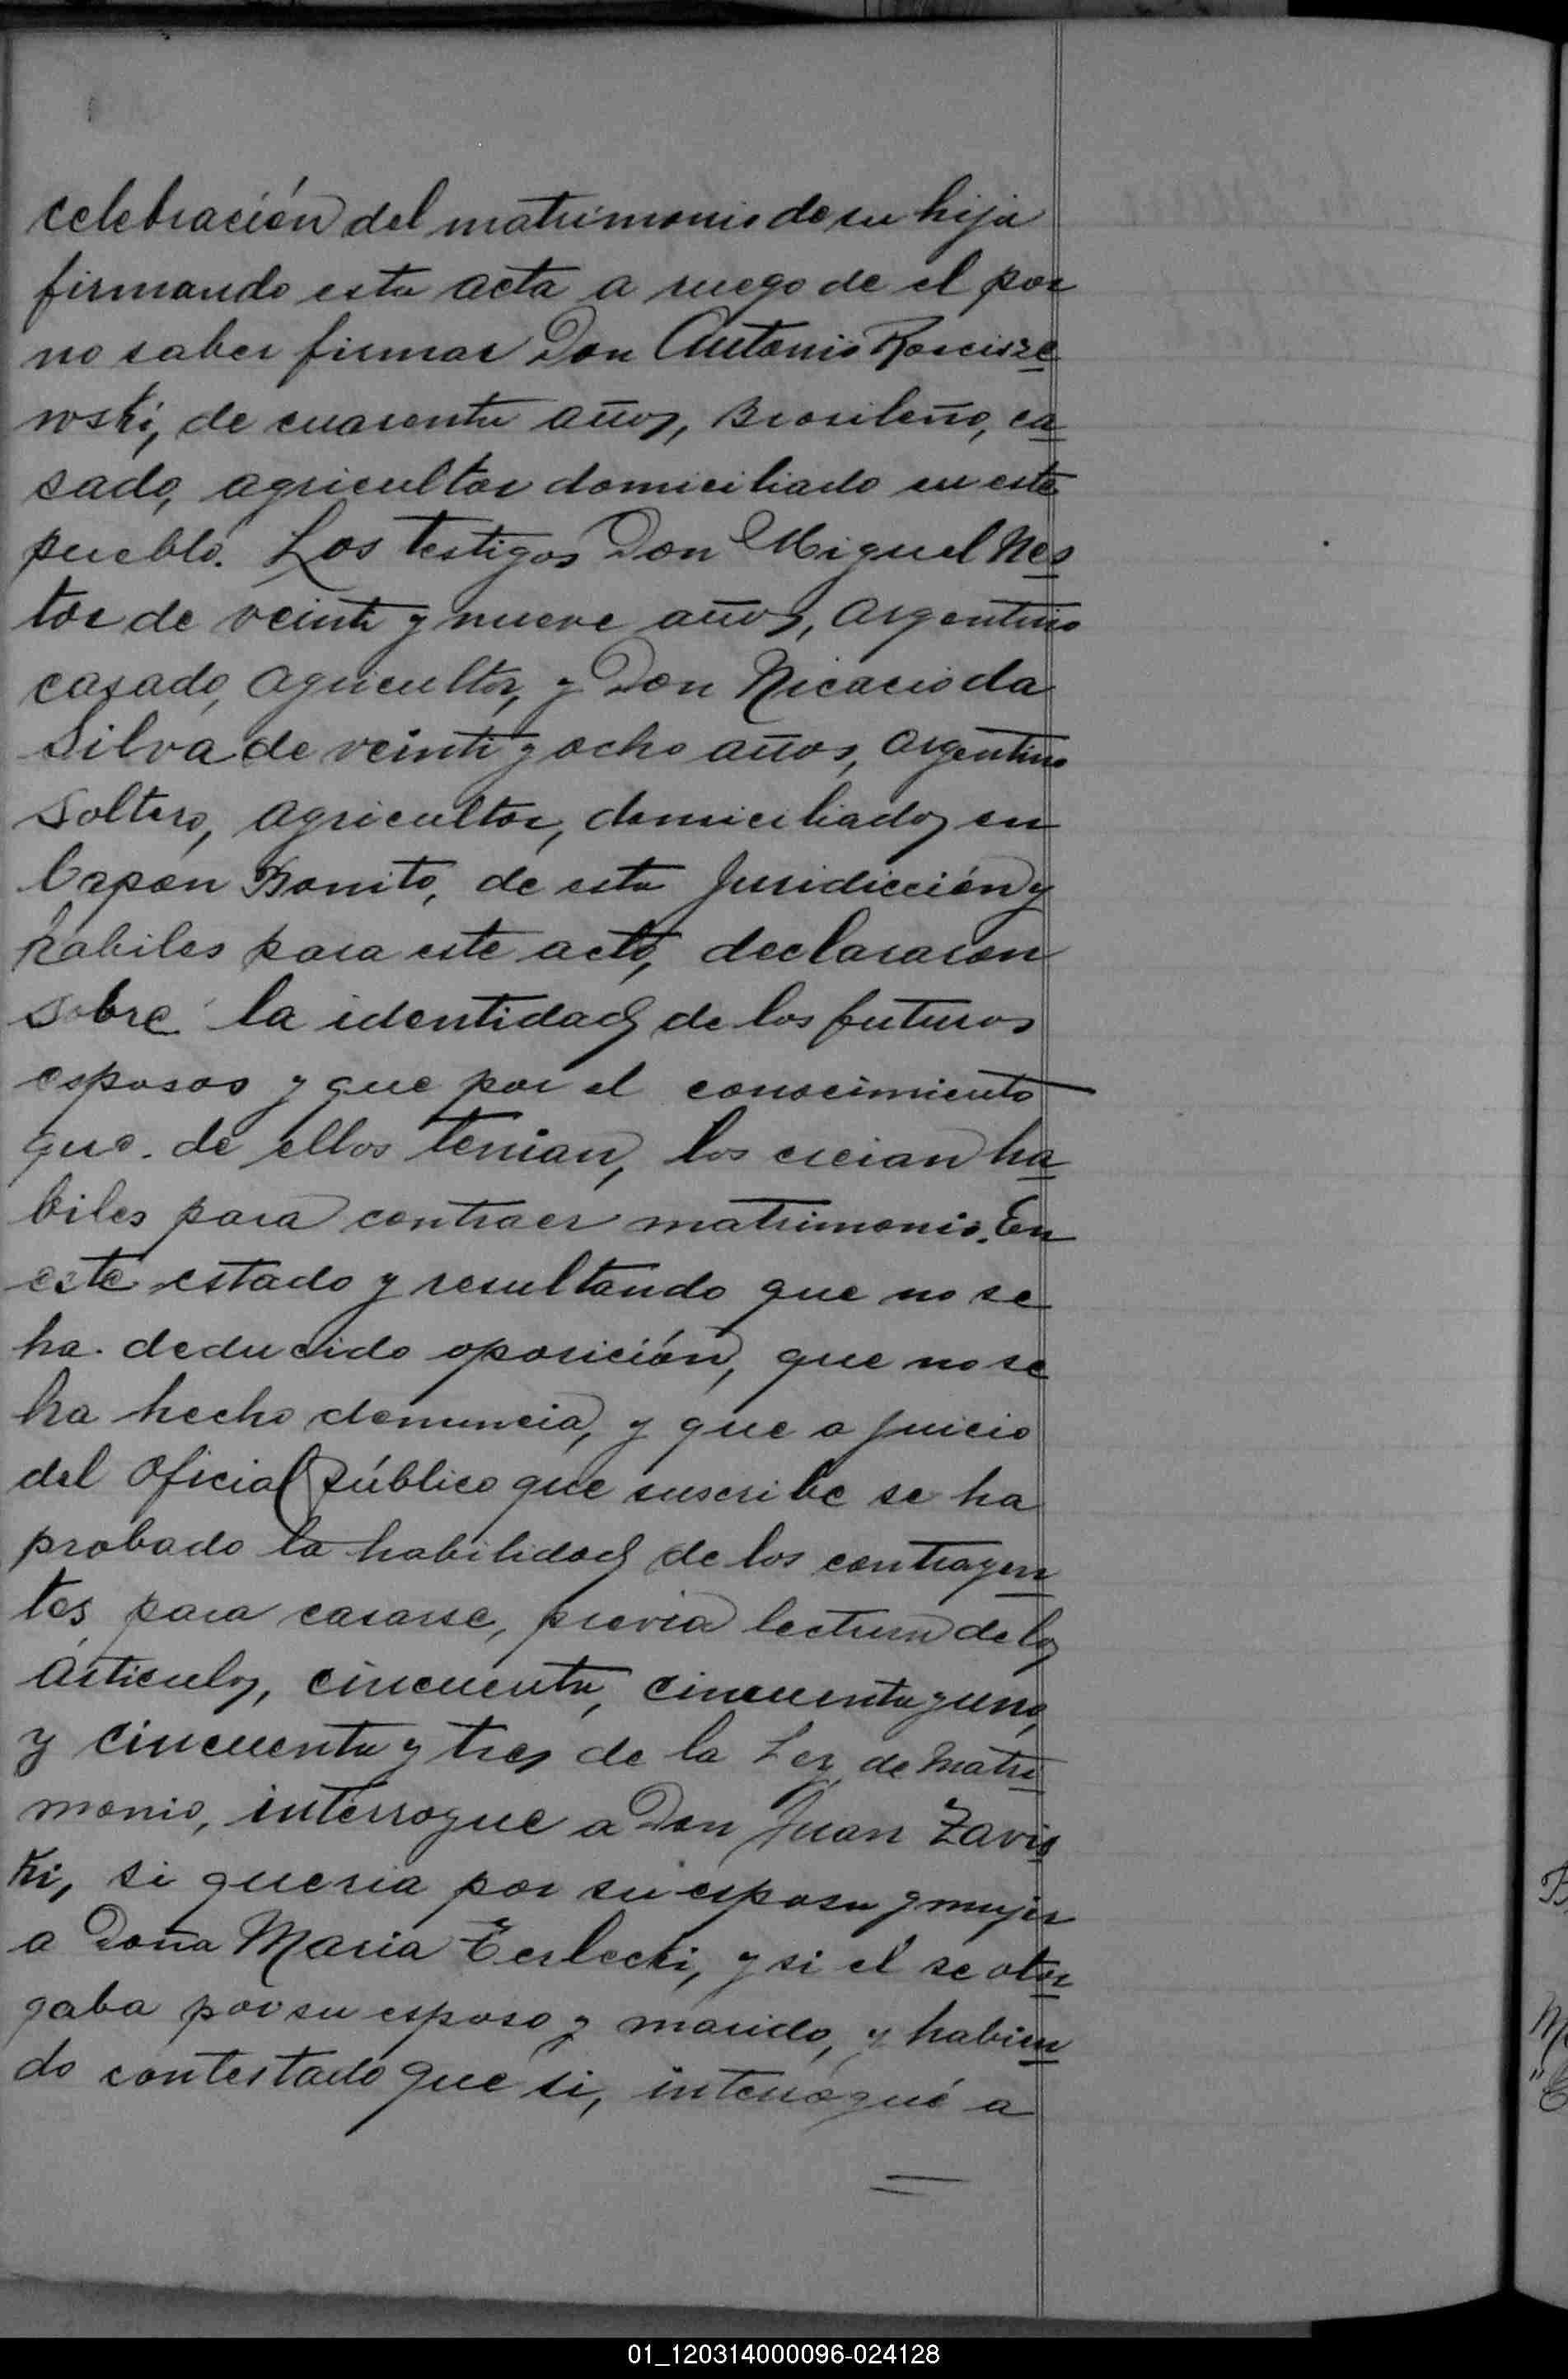 celebración del matrimonio de su hija
firmando esta acta a ruego de el por
no saber firmar Don Antonio Roscisze
wski, de cuarenta años, Brasileño, ca
sado, agricultor domiciliado en este
pueblo. Los testigos Don Miguel Nes
tor de veinti y nueve años, argentino
casado, agricultor, y Don Nicacio da
Silva de veinti y ocho años, argentino
soltero, agricultor, domiciliados en
Capón Bonito, de esta Juridicción y
habiles para este acto, declararon
sobre la identidad de los futuros
esposos y que por el conocimiento
que de ellos tenian, los creian ha
biles para contraer matrimonio. En
este estado y resultando que no se
ha deducido oposición, que no se
ha hecho denuncia, y que a juicio
del Oficial Público que suscribe se ha
probado la habilidad de los contrayen
tes para casarse, previa lectura de los
artículos, cincuenta, cincuenta y uno,
y cincuenta y tres de la Ley de Matri
monio, interrogue a Don Juan Zavis
ki, si queria por su esposa y mujer
a Doña Maria Terlecki, y si el se otor
gaba por su esposo y marido, y habien
do contestado que si, interrogué a
01_120314000096-024128